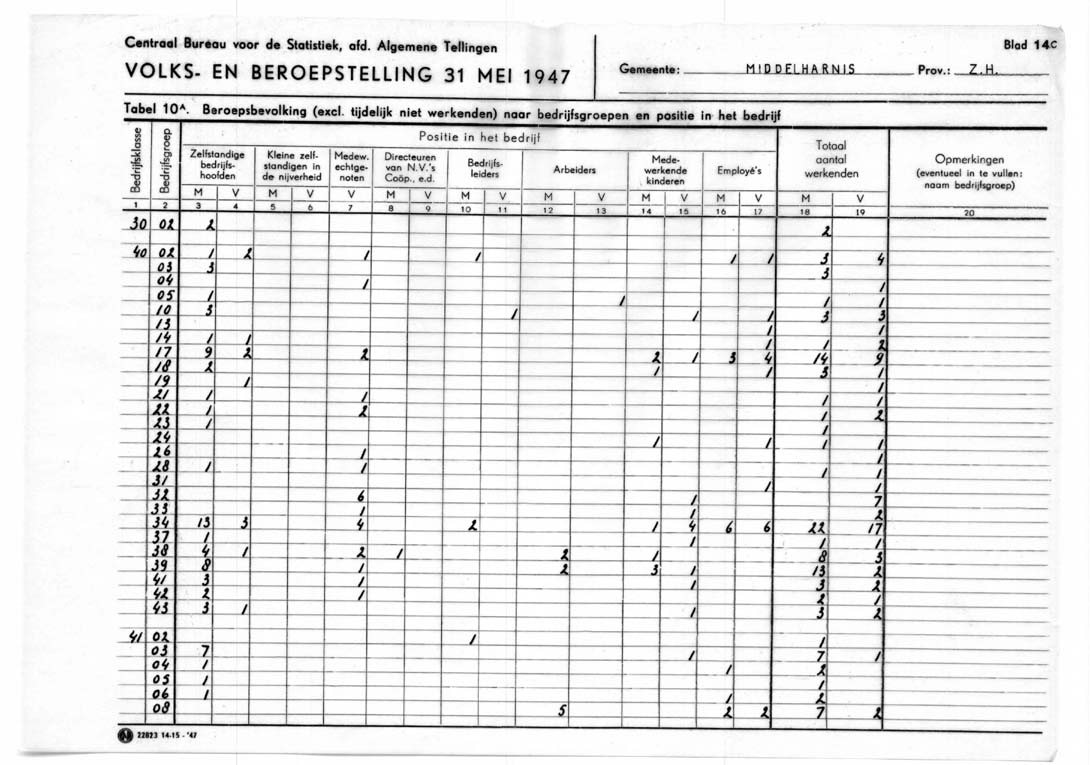 Centraal Bureau voor de Statistiek, afd. Algemene Tellingen
Blad 14C
VOLKS- EN BEROEPSTELLING 31 MEI 1947
Gemeente: MIDDELHARNIS Prov.: Z.H.
Tabel 10A. Beroepsbevolking (excl. tijdelijk niet werkenden) naar bedrijfsgroepen en positie in het bedrijf
Bedrijfsklasse
Bedrijfsgroep
Positie in het bedrijf
Zelfstandige bedrijfs-hoofden
Kleine zelf-standigen in de nijverheid
Medew. echtge-noten
Directeuren van N.V.'s Coöp., e.d.
Bedrijfs-leiders
Arbeiders
Mede-werkende kinderen
Employé's
Totaal aantal werkenden
Opmerkingen (eventueel in te vullen: naam bedrijfsgroep)
M V M V V M V M V M V M V M V M V
1 2 3 4 5 6 7 8 9 10 11 12 13 14 15 16 17 18 19 20
30 02 2 2
40 02 1 2 1 1 1 1 3 4
03 3 3
04 1 1
05 1 1 1 1
10 3 1 1 1 3 3
13 1 1
14 1 1 1 1 2
17 9 2 2 2 1 3 4 14 9
18 2 1 1 3 1
19 1 1
21 1 1 1 1
22 1 2 1 2
23 1 1
24 1 1 1 1
26 1 1
28 1 1 1 1
31 1 1
32 6 1 7
33 1 1 2
34 13 3 4 2 1 4 6 6 22 17
37 1 1 1 1
38 4 1 2 1 2 1 8 3
39 8 1 2 3 1 13 2
41 3 1 1 3 2
42 2 1 2 1
43 3 1 1 3 2
41 02 1 1
03 7 1 7 1
04 1 1 2
05 1 1
06 1 1 2
08 5 2 2 7 2
N 22823 14-15 - '47